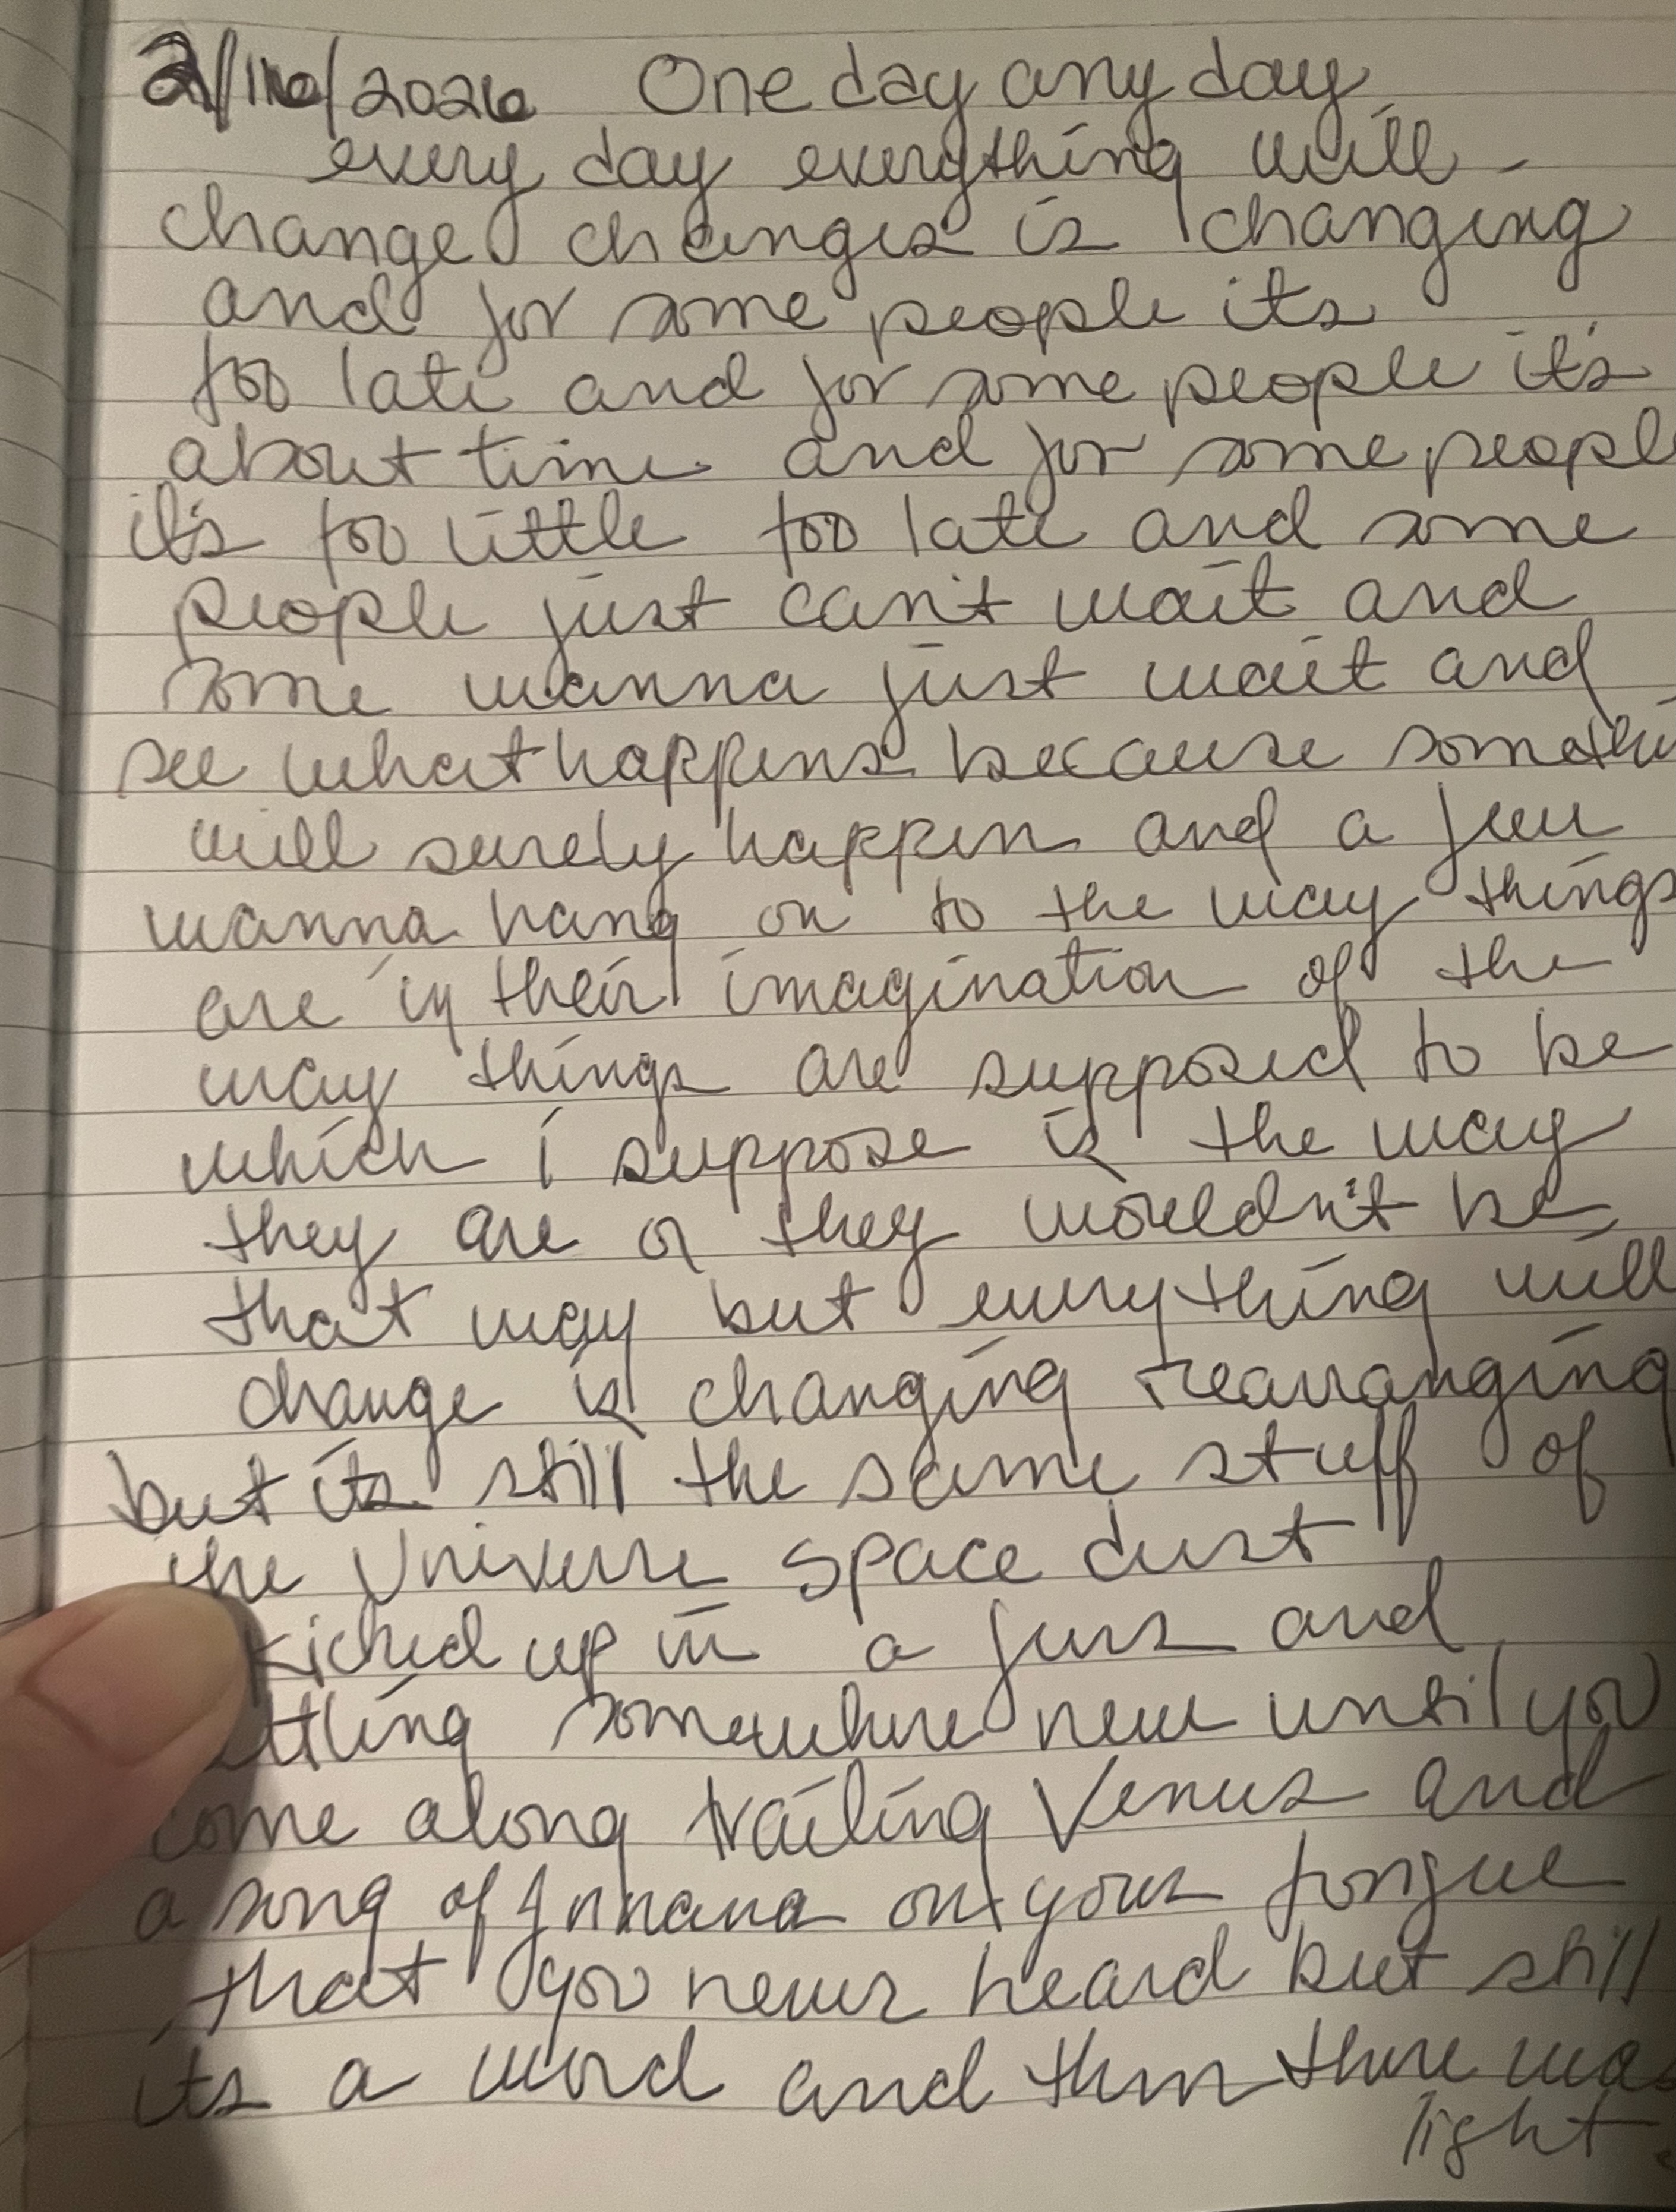 2/16/2026 One day any day
every day everything will
change changes is changing
and for some people its
too late and for some people it's
about time and for some people
it's too little too late and some
people just can't wait and
some wanna just wait and
see what happens because somethi
will surely happen and a few
wanna hang on to the way things
are in their imagination of the
way things are supposed to be
which i suppose is the way
they are or they wouldn't be
that way but everything will
change is changing rearranging
but its still the same stuff of
the Universe space dust
kicked up in a fuss and
ttling somewhere new until you
come along trailing Venus and
a song of Innana on your tongue
that you never heard but still
its a word and then there was
light.